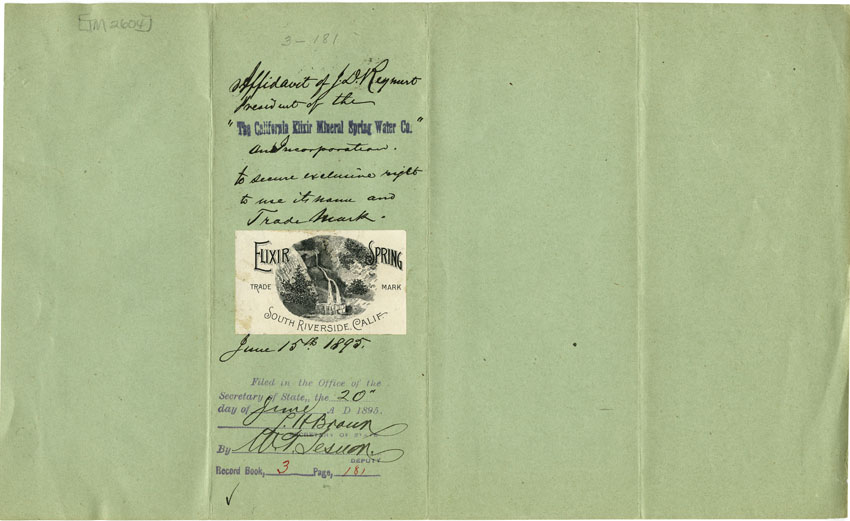 [TM 2604]
3-181
Affidavit of J. D. Reymert
President of the
"The California Elixir Mineral Spring Water Co."
an Incorporation.
to secure exclusive right
to use its name and
Trade Mark.
ELIXIR SPRING
TRADE MARK
SOUTH RIVERSIDE, CALIF
June 15th 1895.
Filed in the Office of the
Secretary of State, the 20"
day of June A D 1895.
L. H. Brown
SECRETARY OF STATE
By
DEPUTY
Record Book, 3 Page, 181